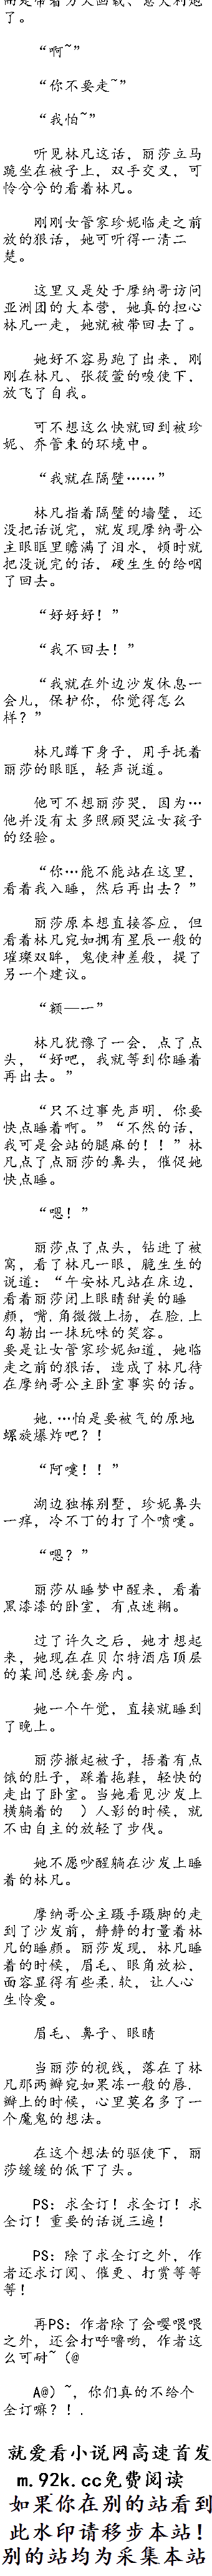 而是带着力大国载、意大利炮
了。
“啊~”
“你不要走~”
“我怕~”
听见林凡这话，丽莎立马
跪坐在被子上，双手交叉，可
怜兮兮的看着林凡。
刚刚女管家珍妮临走之前
放的狠话，她可听得一清二
楚。
这里又是处于摩纳哥访问
亚洲团的大本营，她真的担心
林凡一走，她就被带回去了。
她好不容易跑了出来，刚
刚在林凡、张筱萱的唆使下，
放飞了自我。
可不想这么快就回到被珍
妮、乔管束的环境中。
“我就在隔壁……”
林凡指着隔壁的墙壁，还
没把话说完，就发现摩纳哥公
主眼眶里瞻满了泪水，顿时就
把没说完的话，硬生生的给咽
了回去。
“好好好！”
“我不回去！”
“我就在外边沙发休息一
会儿，保护你，你觉得怎么
样？”
林凡蹲下身子，用手抚着
丽莎的眼眶，轻声说道。
他可不想丽莎哭，因为…
他并没有太多照顾哭泣女孩子
的经验。
“你…能不能站在这里，
看着我入睡，然后再出去？”
丽莎原本想直接答应，但
看着林凡宛如拥有星辰一般的
璀璨双眸，鬼使神差般，提了
另一个建议。
“额—一”
林凡犹豫了一会，点了点
头，“好吧，我就等到你睡着
再出去。”
“只不过事先声明，你要
快点睡着啊。”“不然的话，
我可是会站的腿麻的！！”林
凡点了点点丽莎的鼻头，催促她
快点睡。
“嗯！”
丽莎点了点头，钻进了被
窝，看了林凡一眼，脆生生的
说道：“午安林凡站在床边，
看着丽莎闭上眼睛甜美的睡
颜，嘴.角微微上扬，在脸.上
勾勒出一抹玩味的笑容。
要是让女管家珍妮知道，她临
走之前的狠话，造成了林凡待
在摩纳哥公主卧室事实的话。
她.…怕是要被气的原地
螺旋爆炸吧？！
“阿嚏！！”
湖边独栋别墅，珍妮鼻头
一痒，冷不丁的打了个喷嚏。
“嗯？”
丽莎从睡梦中醒来，看着
黑漆漆的卧室，有点迷糊。
过了许久之后，她才想起
来，她现在在贝尔特酒店顶层
的某间总统套房内。
她一个午觉，直接就睡到
了晚上。
丽莎掀起被子，捂着有点
饿的肚子，踩着拖鞋，轻快的
走出了卧室。当她看见沙发上
横躺着的　）人影的时候，就
不由自主的放轻了步伐。
她不愿吵醒躺在沙发上睡
着的林凡。
摩纳哥公主蹑手蹑脚的走
到了沙发前，静静的打量着林
凡的睡颜。丽莎发现，林凡睡
着的时候，眉毛、眼角放松，
面容显得有些柔.软，让人心
生怜爱。
眉毛、鼻子、眼睛
当丽莎的视线，落在了林
凡那两瓣宛如果冻一般的唇.
瓣上的时候，心里莫名多了一
个魔鬼的想法。
在这个想法的驱使下，丽
莎缓缓的低下了头。
PS：求全订！求全订！求
全订！重要的话说三遍！
PS：除了求全订之外，作
者还求订阅、催更、打赏等等
等！
再PS：作者除了会嘤喂喂
之外，还会打呼噜哟，作者这
么可耐~（@
A@）~，你们真的不给个
全订嘛？！.
就爱看小说网高速首发
m.92k.cc免费阅读
如果你在别的站看到
此水印请移步本站！
别的站均为采集本站